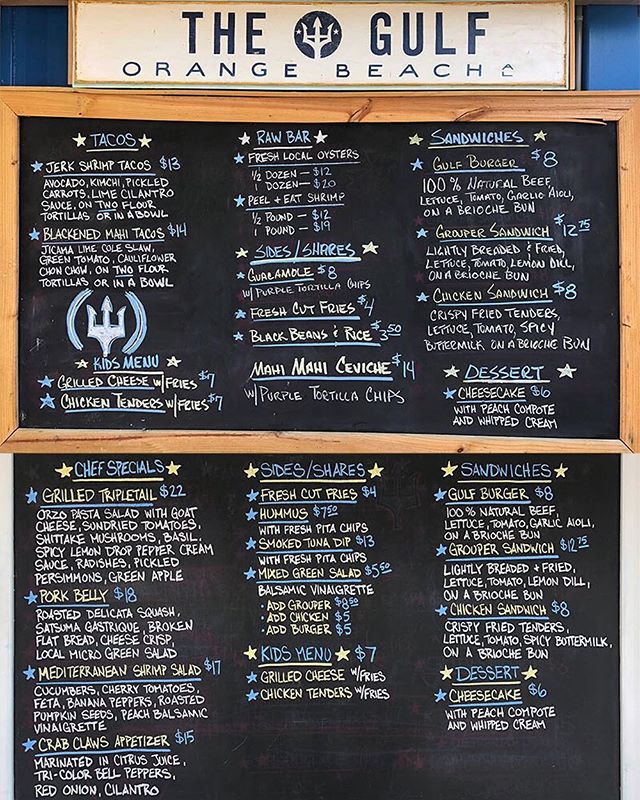 THE GULF
ORANGE BEACH
TACOS
JERK SHRIMP TACOS $13
AVOCADO, KIMCHI, PICKLED
CARROTS, LIME CILANTRO
SAUCE, ON TWO FLOUR
TORTILLAS OR IN A BOWL
BLACKENED MAHI TACOS $14
JICAMA LIME COLE SLAW,
GREEN TOMATO, CAULIFLOWER
CHOW CHOW, ON TWO FLOUR
TORTILLAS OR IN A BOWL
KIDS MENU
GRILLED CHEESE W/FRIES $7
CHICKEN TENDERS W/FRIES $7
RAW BAR
FRESH LOCAL OYSTERS
1/2 DOZEN — $12
1 DOZEN — $20
PEEL + EAT SHRIMP
1/2 POUND — $12
1 POUND — $19
SIDES/SHARES
GUACAMOLE $8
W/ PURPLE TORTILLA CHIPS
FRESH CUT FRIES $4
BLACK BEANS & RICE $3.50
MAHI MAHI CEVICHE $14
W/ PURPLE TORTILLA CHIPS
SANDWICHES
GULF BURGER $8
100% NATURAL BEEF,
LETTUCE, TOMATO, GARLIC AIOLI,
ON A BRIOCHE BUN
GROUPER SANDWICH $12.75
LIGHTLY BREADED & FRIED,
LETTUCE, TOMATO, LEMON DILL,
ON A BRIOCHE BUN
CHICKEN SANDWICH $8
CRISPY FRIED TENDERS,
LETTUCE, TOMATO, SPICY
BUTTERMILK, ON A BRIOCHE BUN
DESSERT
CHEESECAKE $6
WITH PEACH COMPOTE
AND WHIPPED CREAM
CHEF SPECIALS
GRILLED TRIPLETAIL $22
ORZO PASTA SALAD WITH GOAT
CHEESE, SUNDRIED TOMATOES,
SHIITAKE MUSHROOMS, BASIL,
SPICY LEMON DROP PEPPER CREAM
SAUCE, RADISHES, PICKLED
PERSIMMONS, GREEN APPLE
PORK BELLY $18
ROASTED DELICATA SQUASH,
SATSUMA GASTRIQUE, BROKEN
FLAT BREAD, CHEESE CRISP,
LOCAL MICRO GREEN SALAD
MEDITERRANEAN SHRIMP SALAD $17
CUCUMBERS, CHERRY TOMATOES,
FETA, BANANA PEPPERS, ROASTED
PUMPKIN SEEDS, PEACH BALSAMIC
VINAIGRETTE
CRAB CLAWS APPETIZER $15
MARINATED IN CITRUS JUICE,
TRI-COLOR BELL PEPPERS,
RED ONION, CILANTRO
SIDES/SHARES
FRESH CUT FRIES $4
HUMMUS $7.50
WITH FRESH PITA CHIPS
SMOKED TUNA DIP $13
WITH FRESH PITA CHIPS
MIXED GREEN SALAD $5.50
BALSAMIC VINAIGRETTE
• ADD GROUPER $8.50
• ADD CHICKEN $5
• ADD BURGER $5
KIDS MENU $7
GRILLED CHEESE W/FRIES
CHICKEN TENDERS W/FRIES
SANDWICHES
GULF BURGER $8
100% NATURAL BEEF,
LETTUCE, TOMATO, GARLIC AIOLI,
ON A BRIOCHE BUN
GROUPER SANDWICH $12.75
LIGHTLY BREADED + FRIED,
LETTUCE, TOMATO, LEMON DILL,
ON A BRIOCHE BUN
CHICKEN SANDWICH $8
CRISPY FRIED TENDERS,
LETTUCE, TOMATO, SPICY BUTTERMILK,
ON A BRIOCHE BUN
DESSERT
CHEESECAKE $6
WITH PEACH COMPOTE
AND WHIPPED CREAM